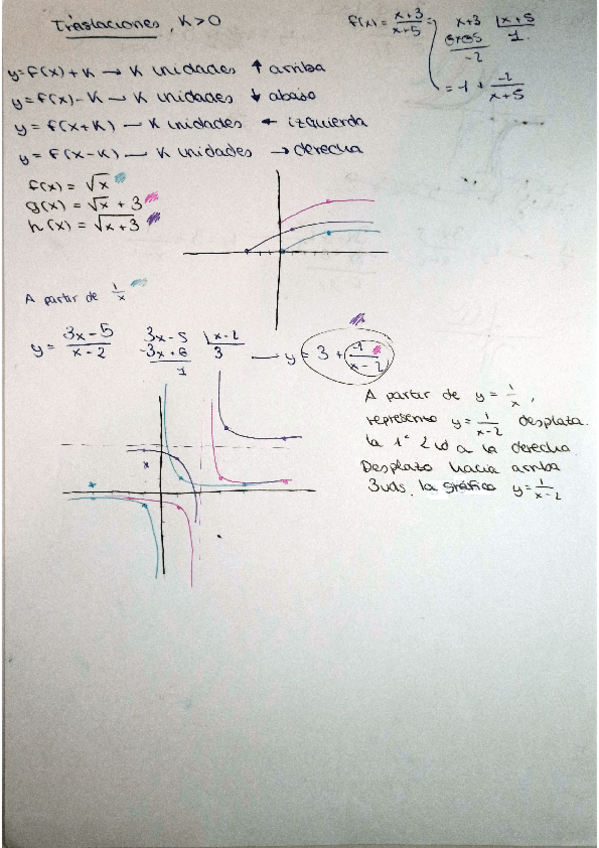 Traslaciones, K>0
f(x) = x+3/x+5 =
x+3 |x+5
-2 1.
= 1 + -2/x+5
y=f(x)+K → K unidades ↑ arriba
y=f(x)-K → K unidades ↓ abajo
y = f(x+K) — K unidades ← izquierda
y = f(x-K) — K unidades → derecha
f(x) = √x
g(x) = √x + 3
h(x) = √x+3
A partir de 1/x
y = 3x-5/x-2
3x-5 |x-2
-3x+6 3
1
→ y = 3 + 1/x-2
A partir de y = 1/x,
represento y = 1/x-2 desplaza.
la 1ª 2 ud a la derecha.
Desplazo hacia arriba
3uds. la gráfica y=1/x-2